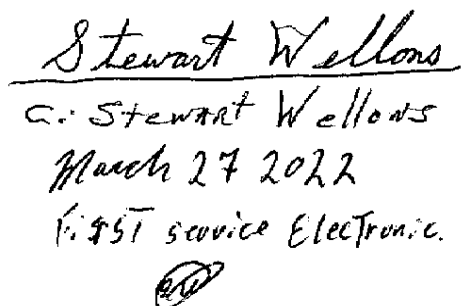 Stewart Wellons
C. Stewart Wellons
March 27 2022
First service Electronic.